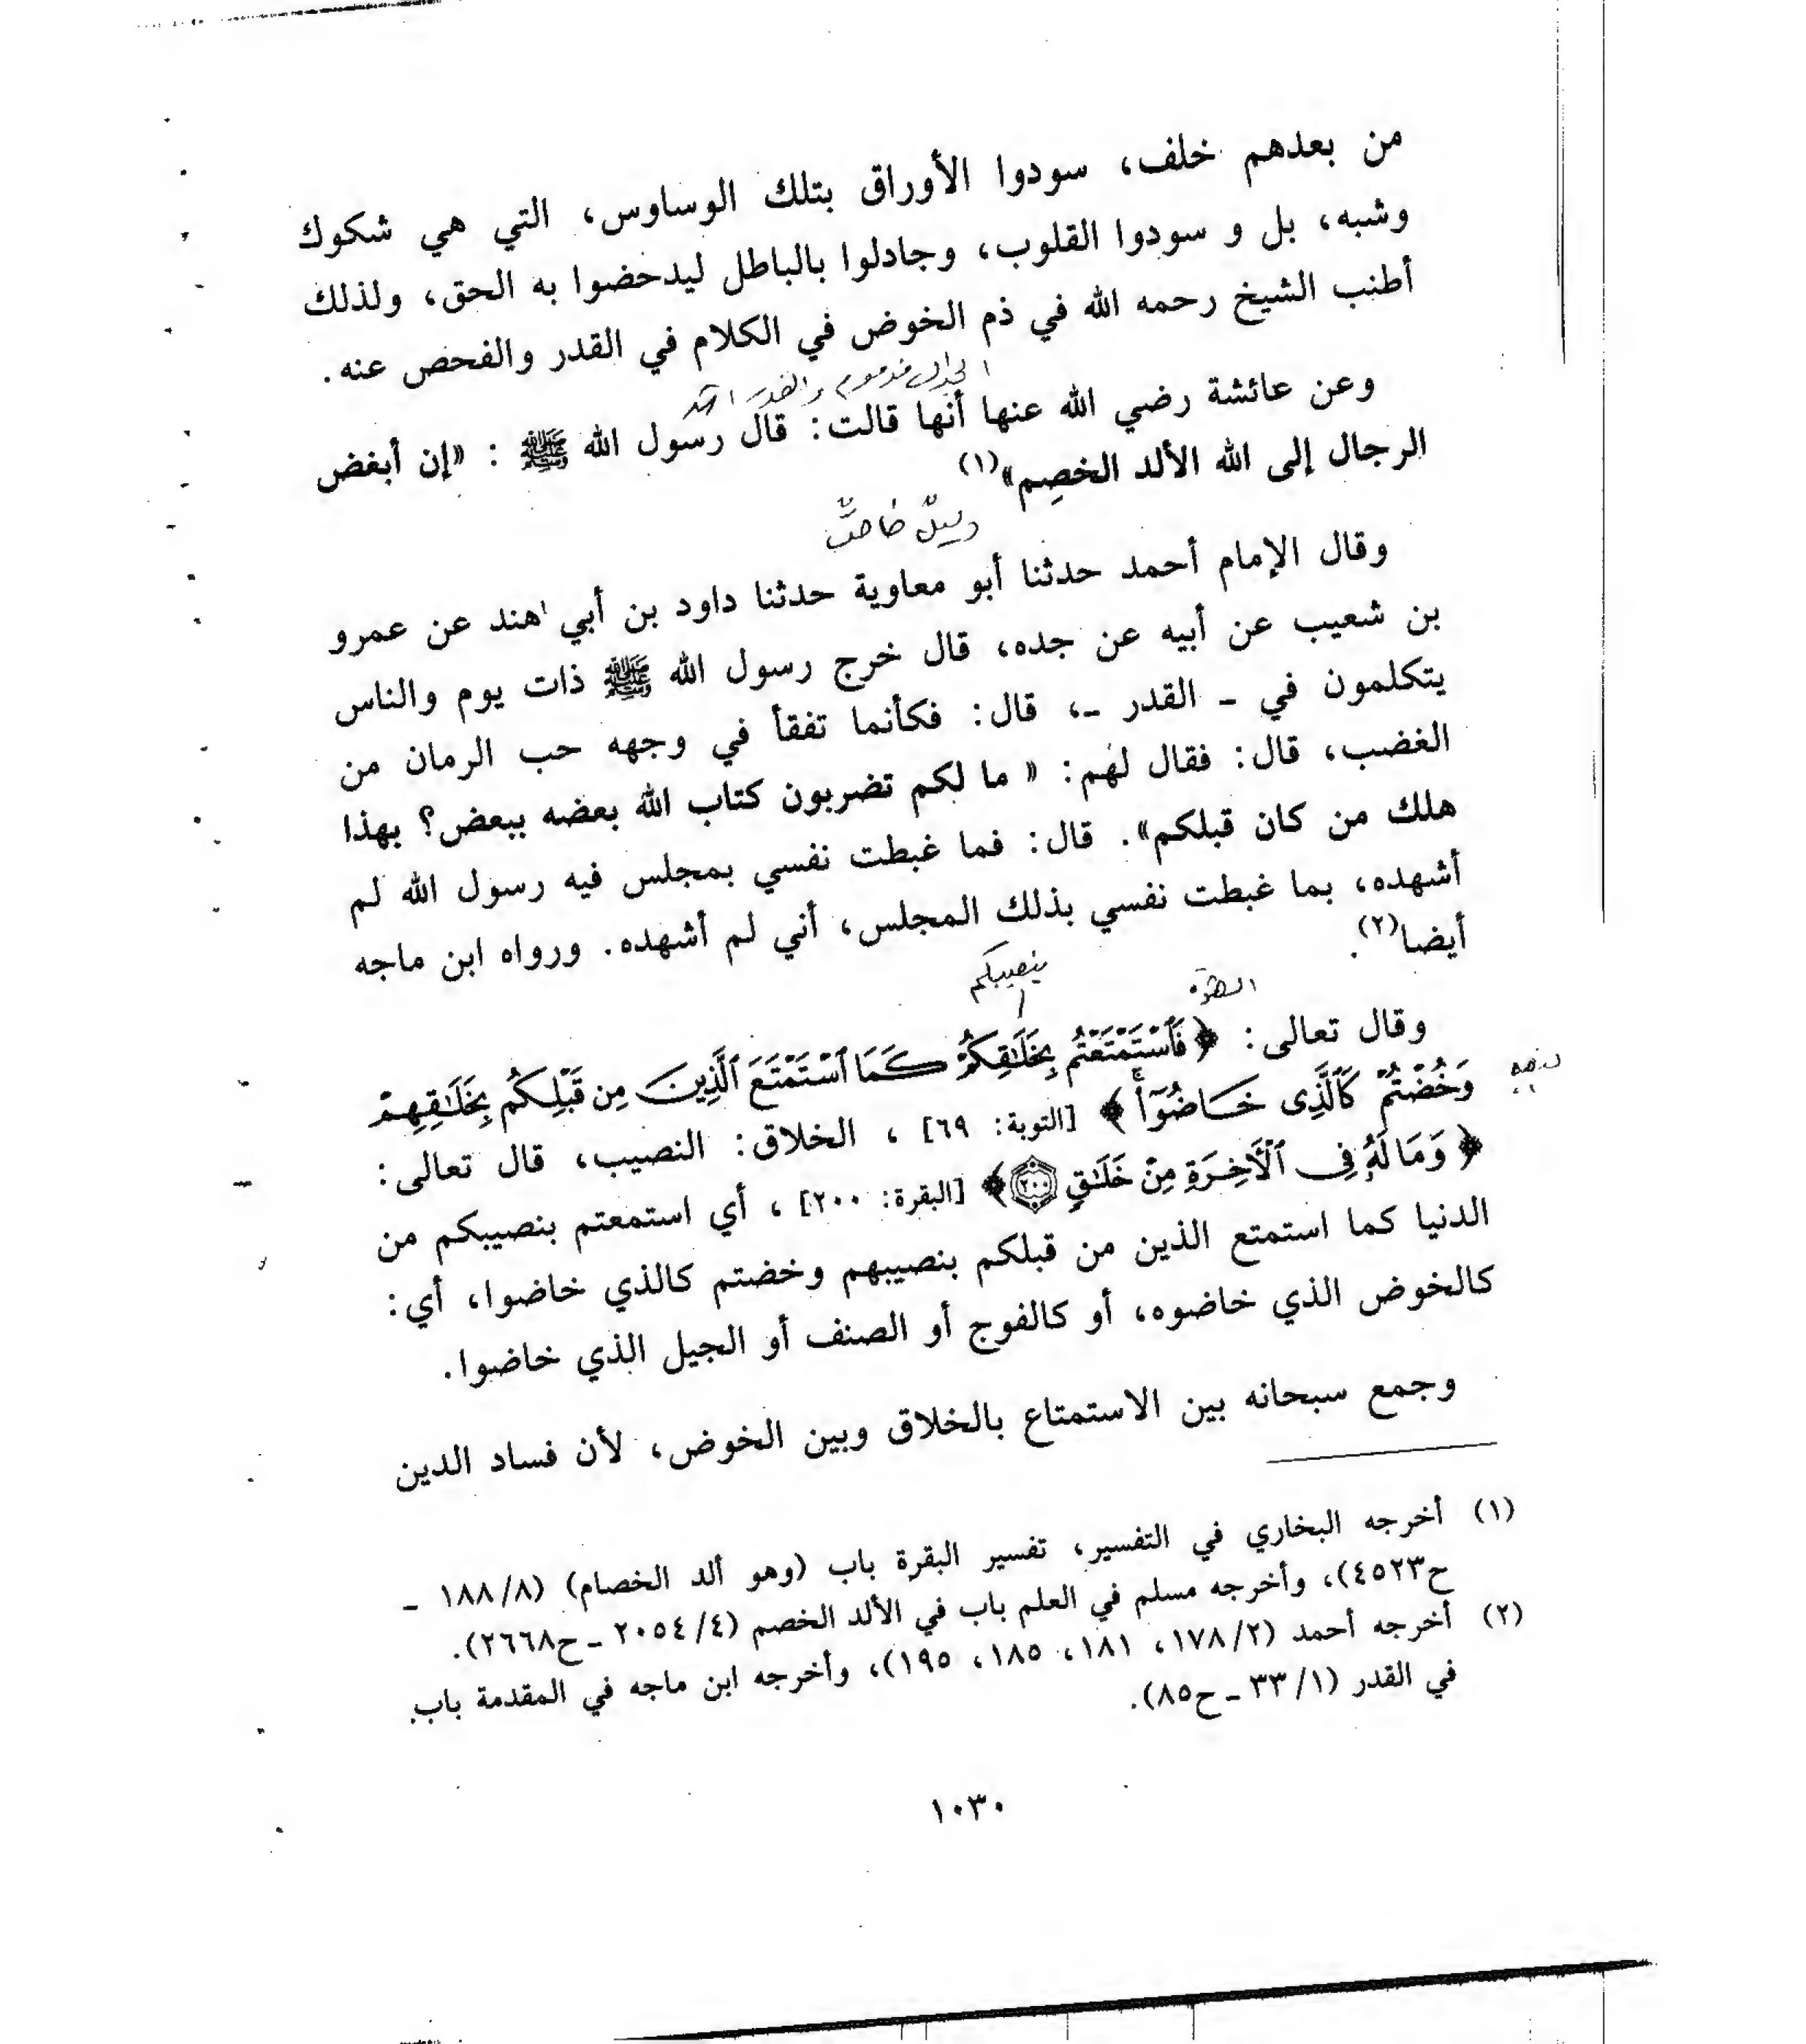 من بعدهم خلف، سودوا الأوراق بتلك الوساوس، التي هي شكوك
وشبه، بل و سودوا القلوب، وجادلوا بالباطل ليدحضوا به الحق، ولذلك
أطنب الشيخ رحمه الله في ذم الخوض في الكلام في القدر والفحص عنه.
الجدال مذموم والقدر
وعن عائشة رضي الله عنها أنها قالت: قال رسول الله ﷺ : «إن أبغض
الرجال إلى الله الألد الخصِم»(١)
دليل خاص
وقال الإمام أحمد حدثنا أبو معاوية حدثنا داود بن أبي هند عن عمرو
بن شعيب عن أبيه عن جده، قال خرج رسول الله ﷺ ذات يوم والناس
يتكلمون في - القدر -، قال: فكأنما تفقأ في وجهه حب الرمان من
الغضب، قال: فقال لهم: « ما لكم تضربون كتاب الله بعضه ببعض؟ بهذا
هلك من كان قبلكم». قال: فما غبطت نفسي بمجلس فيه رسول الله لم
أشهده، بما غبطت نفسي بذلك المجلس، أني لم أشهده. ورواه ابن ماجه
أيضا(٢).
بنصيبكم
وقال تعالى: ﴿ فَٱسْتَمْتَعْتُم بِخَلَٰقِكُمْ كَمَا ٱسْتَمْتَعَ ٱلَّذِينَ مِن قَبْلِكُم بِخَلَٰقِهِمْ
وَخُضْتُمْ كَٱلَّذِى خَاضُوٓا۟ ﴾ [التوبة: ٦٩] ، الخلاق: النصيب، قال تعالى:
﴿ وَمَا لَهُۥ فِى ٱلْءَاخِرَةِ مِنْ خَلَٰقٍ ۝٢٠٠ ﴾ [البقرة: ٢٠٠] ، أي استمعتم بنصيبكم من
الدنيا كما استمتع الذين من قبلكم بنصيبهم وخضتم كالذي خاضوا، أي:
كالخوض الذي خاضوه، أو كالفوج أو الصنف أو الجيل الذي خاضوا.
وجمع سبحانه بين الاستمتاع بالخلاق وبين الخوض، لأن فساد الدين
(١) أخرجه البخاري في التفسير، تفسير البقرة باب (وهو ألد الخصام) (١٨٨/٨ -
ح٤٥٢٣)، وأخرجه مسلم في العلم باب في الألد الخصم (٢٠٥٤/٤ - ح٢٦٦٨).
(٢) أخرجه أحمد (١٧٨/٢، ١٨١، ١٨٥، ١٩٥)، وأخرجه ابن ماجه في المقدمة باب
في القدر (٣٣/١ - ح٨٥).
١٠٣٠